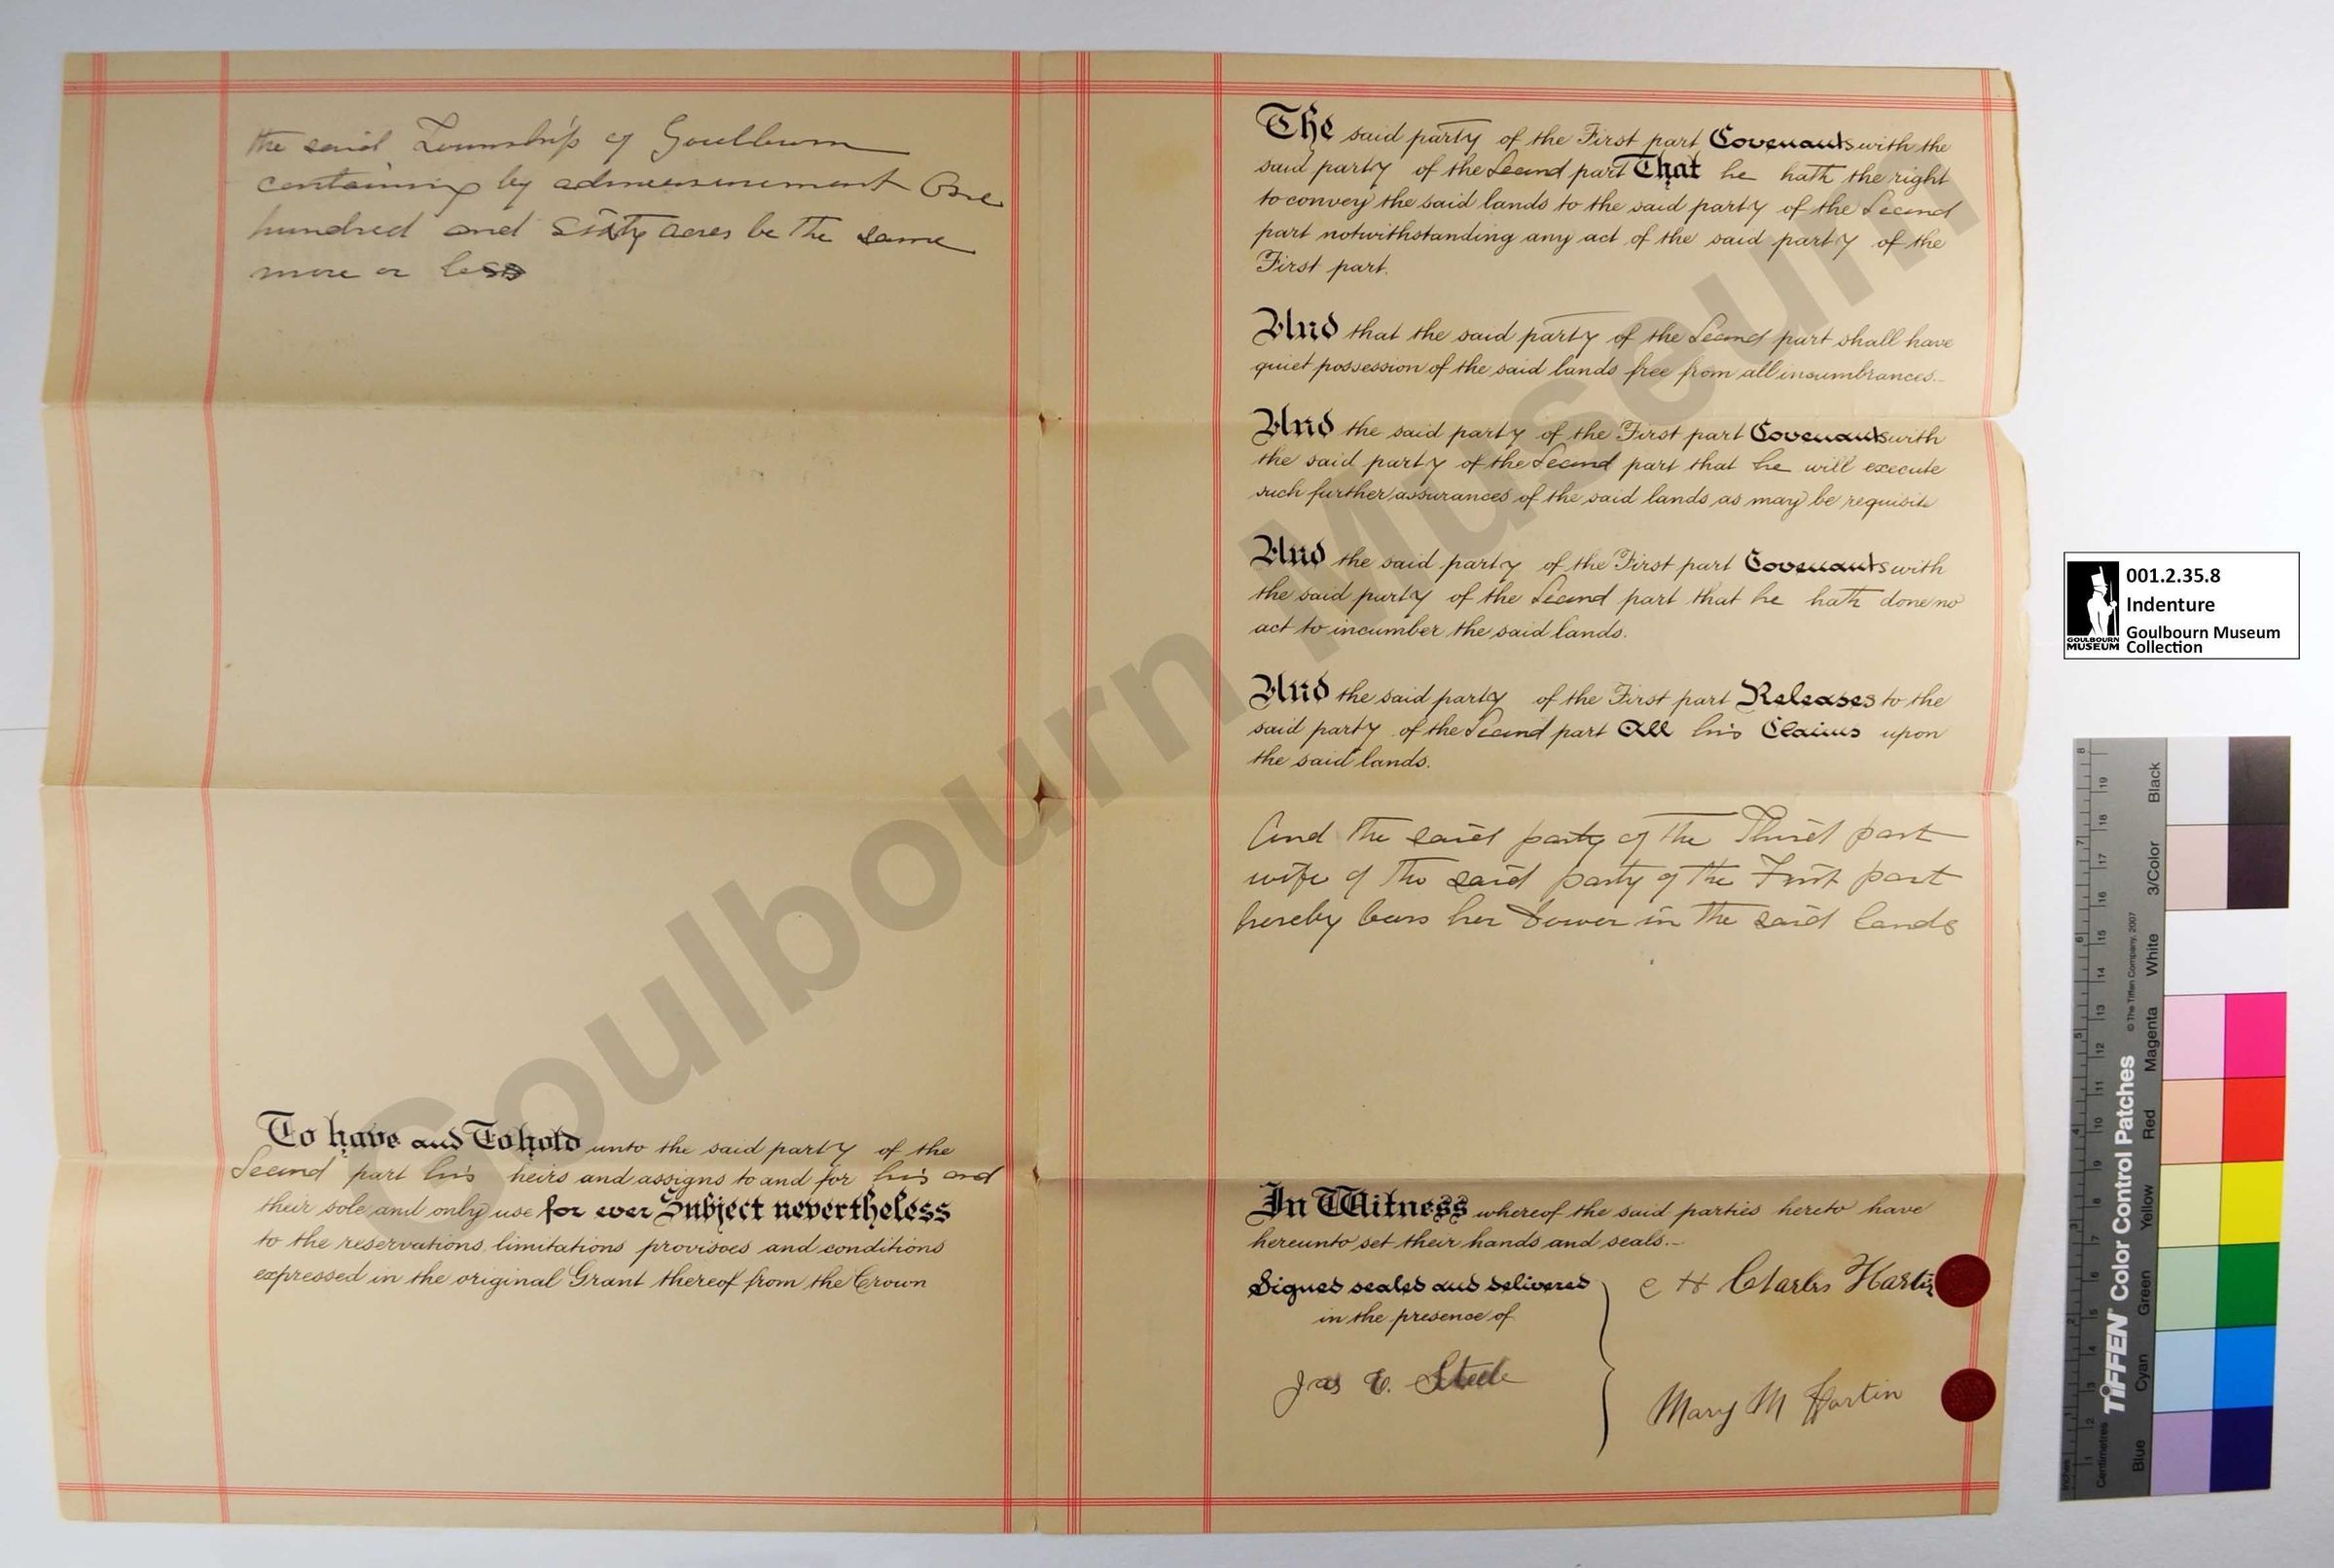 the said Township of Goulburn
containing by admeasurement One
hundred and sixty acres be the same
more or less
To have and To hold unto the said party of the
Second part his heirs and assigns to and for his and
their sole and only use for ever Subject nevertheless
to the reservations, limitations provisoes and conditions
expressed in the original Grant thereof from the Crown
The said party of the First part Covenants with the
said party of the Second part That he hath the right
to convey the said lands to the said party of the Second
part notwithstanding any act of the said party of the
First part.
And that the said party of the Second part shall have
quiet possession of the said lands free from all incumbrances.
And the said party of the First part Covenants with
the said party of the Second part that he will execute
such further assurances of the said lands as may be requisite
And the said party of the First part Covenants with
the said party of the Second part that he hath done no
act to incumber the said lands.
And the said party of the First part Releases to the
said party of the Second part All his Claims upon
the said lands.
And the said party of the Third part
wife of the said party of the First part
hereby bars her Dower in the said lands
In Witness whereof the said parties hereto have
hereunto set their hands and seals.
Signed sealed and delivered
in the presence of
Jas E. Steele
C H Charles Hartin
Mary M Hartin
Goulbourn Museum
001.2.35.8
Indenture
Goulbourn Museum
Collection
GOULBOURN
MUSEUM
TIFFEN Color Control Patches
© The Tiffen Company, 2007
Blue Cyan Green Yellow Red Magenta White 3/Color Black
Inches
Centimetres
1 2 3 4 5 6 7 8
1 2 3 4 5 6 7 8 9 10 11 12 13 14 15 16 17 18 19